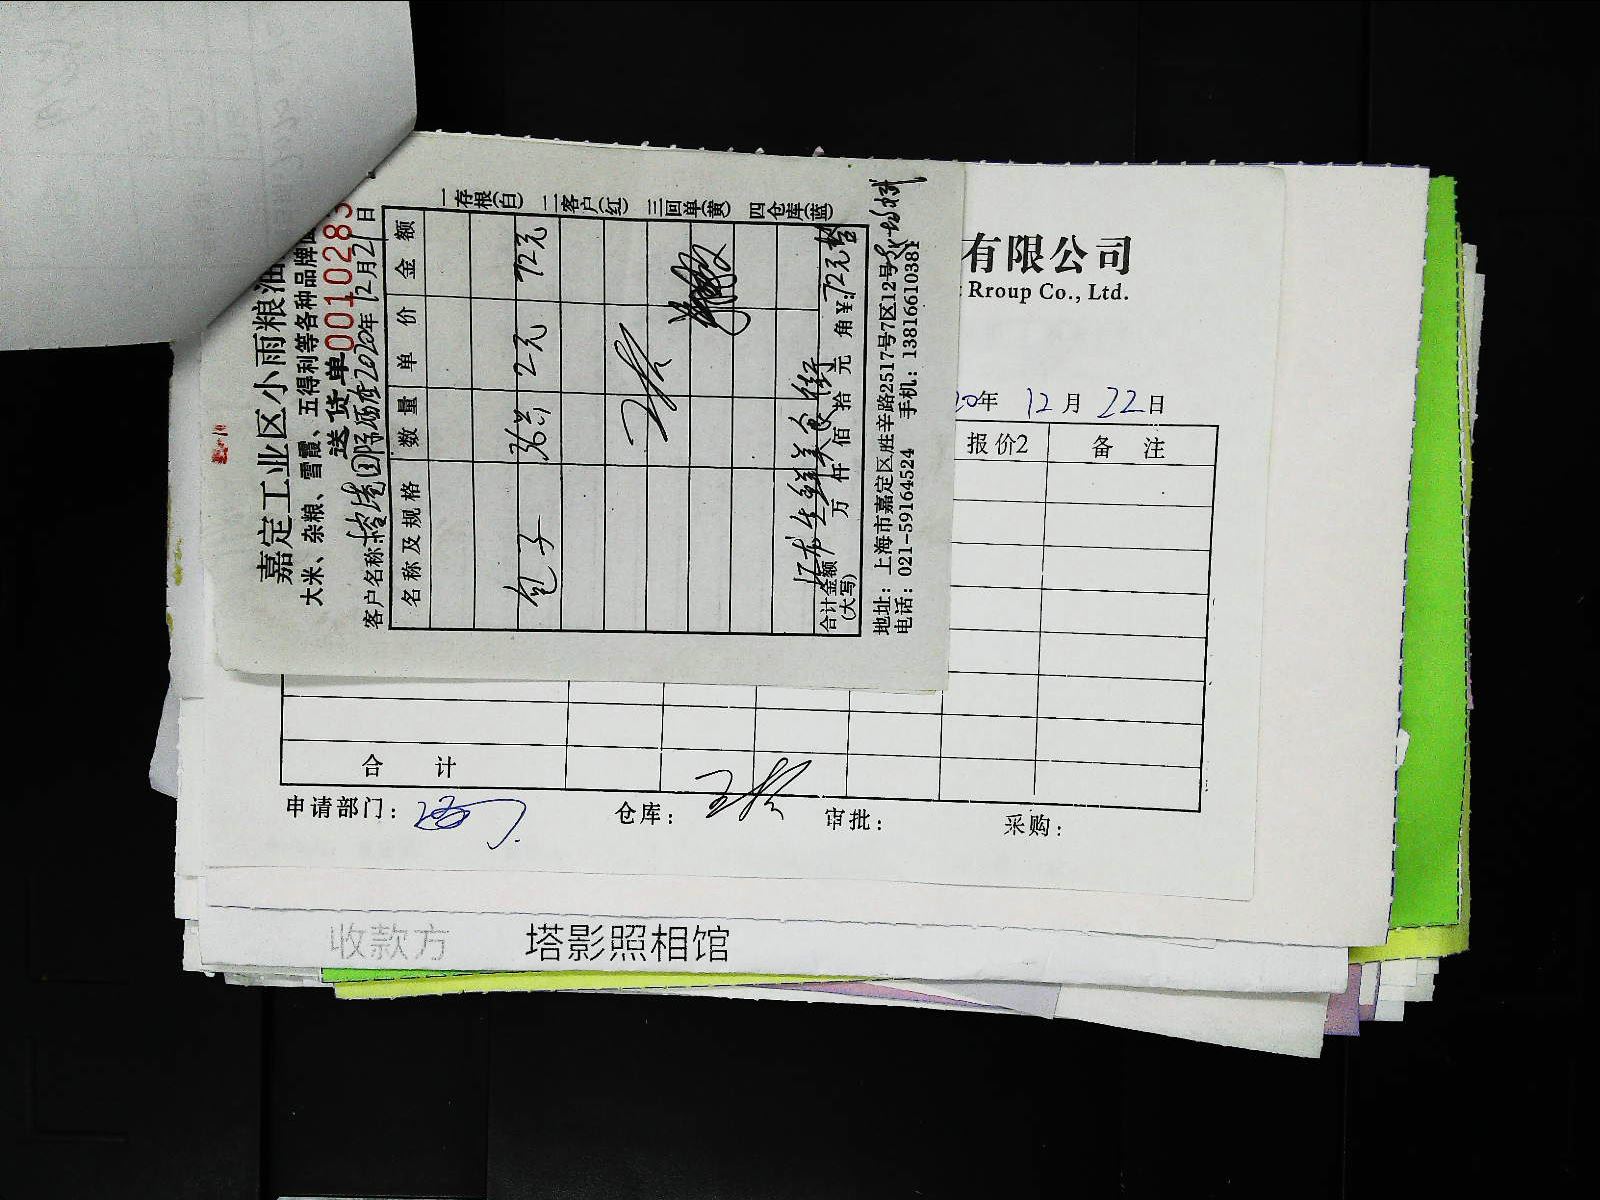 嘉定工业区小雨粮油
大米、杂粮、雪霞、五得利等各种品牌
送货单 0010283
客户名称: 国际酒店 2020年12月21日
名称及规格 数量 单价 金额
包子 36只 2元 72元
生鲜美食街
合计金额(大写) 万 仟 佰 拾 元 角 ¥:72元整
地址:上海市嘉定区胜辛路2517号7区12号
电话:021-59164524 手机:13816610381
一存根(白) 二客户(红) 三回单(黄) 四仓库(蓝)
有限公司
Rroup Co., Ltd.
20年 12月 22日
报价2 备注
合计
申请部门: 仓库: 审批: 采购:
收款方 塔影照相馆